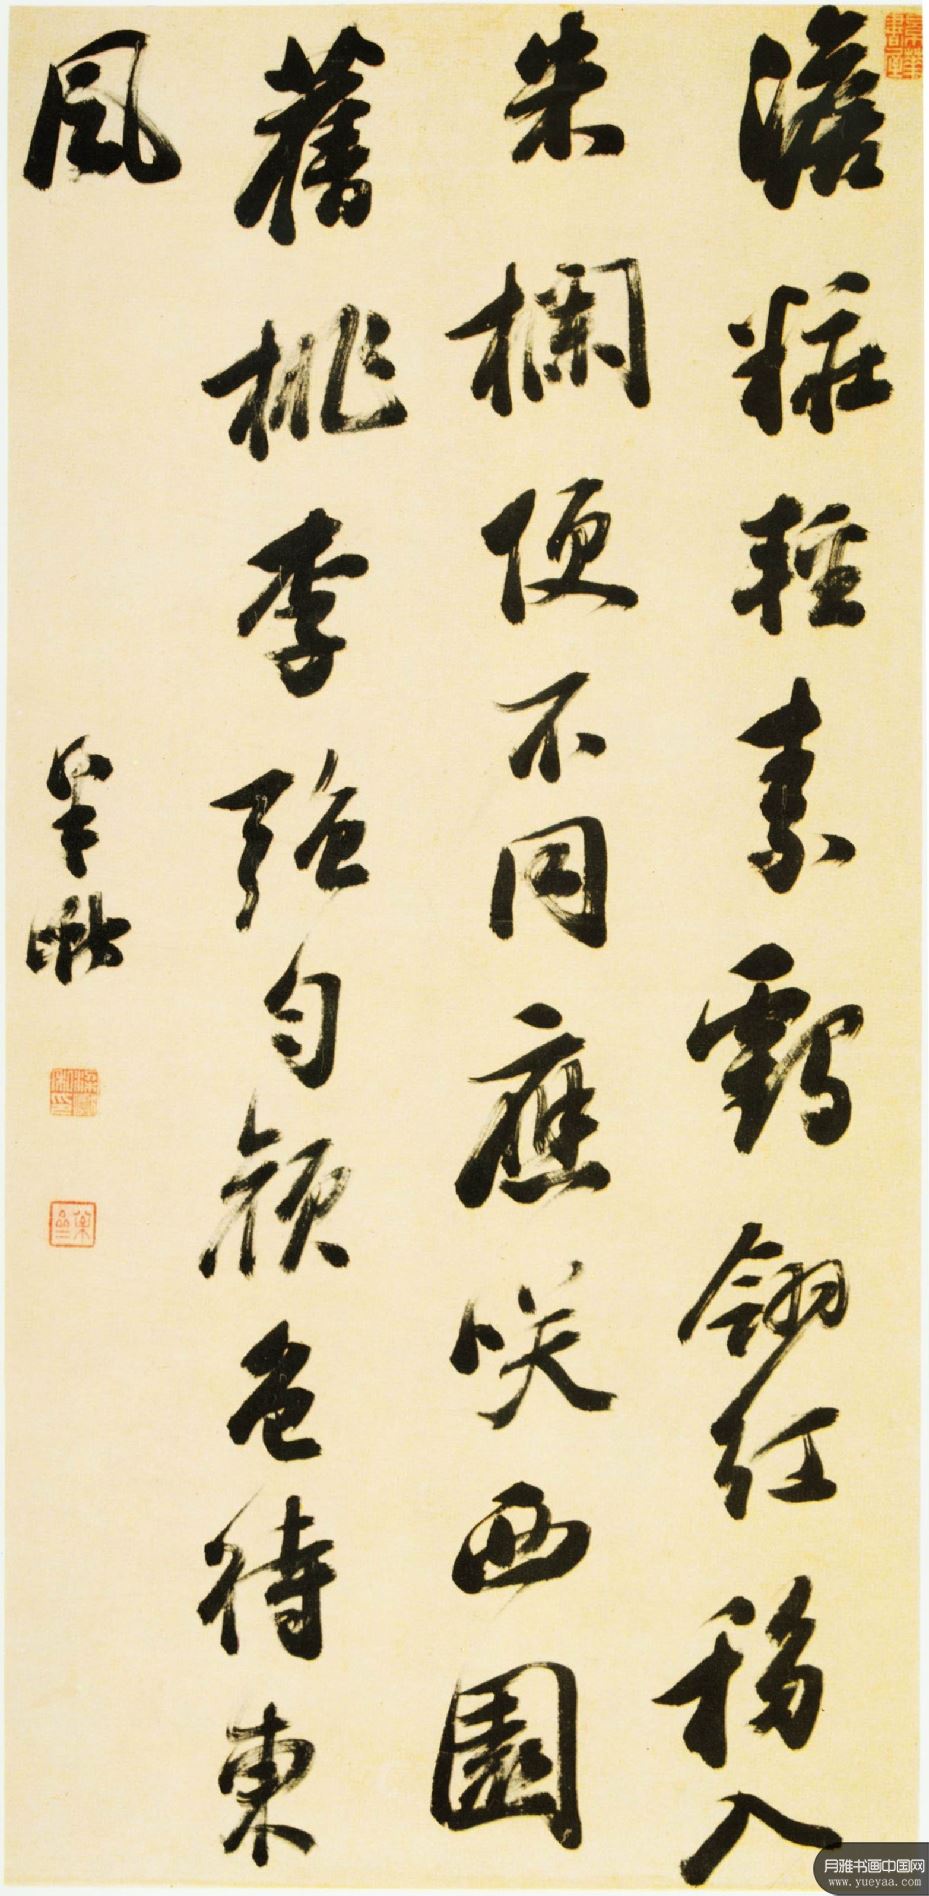 澹粧輕素鶴翎紅移入
朱欄便不同應咲西園
舊桃李強勻顏色待東
風
皋
月雅书画中国网
www.yueyaa.com